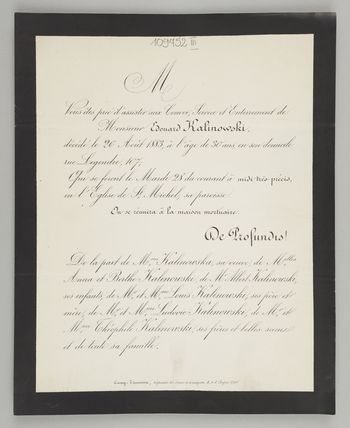 109452 III
M
Vous êtes prié d'assister aux Convoi, Service et Enterrement de
Monsieur Edouard Kalinowski,
décédé le 26 Août 1883, à l'âge de 30 ans, en son domicile
rue Legendre, 107.
Qui se feront le Mardi 28 du courant à midi très-précis,
en l'Église de St Michel, sa paroisse.
On se réunira à la maison mortuaire.
De Profundis!
De la part de Mme Kalinowska, sa veuve, de Melles
Anna et Berthe Kalinowski, de Mr Albert Kalinowski,
ses enfants, de Mr et Mme Louis Kalinowski, ses père et
mère, de Mr et Mme Ludovic Kalinowski, de Mr et
Mme Théophile Kalinowski, ses frères et belles sœurs
et de toute sa famille.